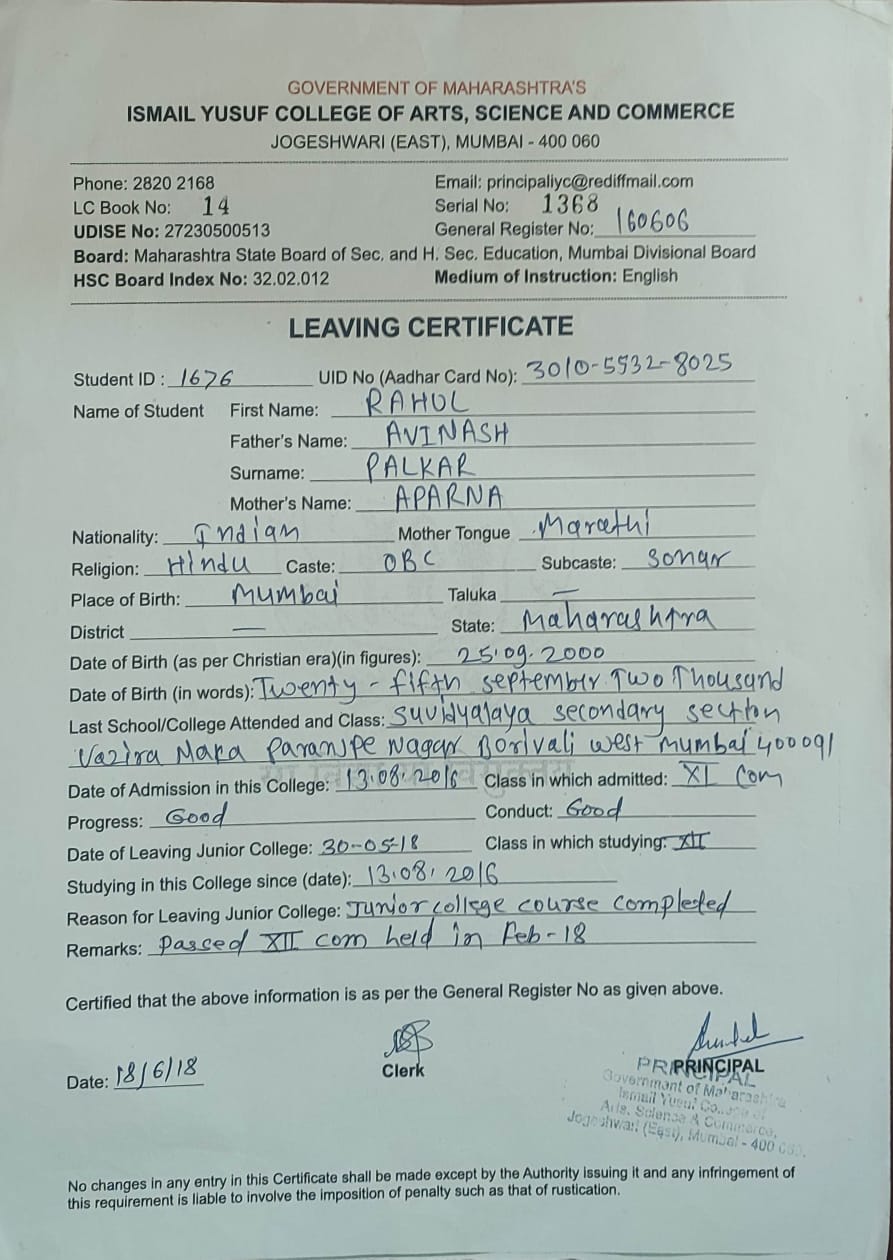 GOVERNMENT OF MAHARASHTRA'S
ISMAIL YUSUF COLLEGE OF ARTS, SCIENCE AND COMMERCE
JOGESHWARI (EAST), MUMBAI - 400 060
Phone: 2820 2168 Email: principaliyc@rediffmail.com
LC Book No: 14 Serial No: 1368
UDISE No: 27230500513 General Register No: 160606
Board: Maharashtra State Board of Sec. and H. Sec. Education, Mumbai Divisional Board
HSC Board Index No: 32.02.012 Medium of Instruction: English
LEAVING CERTIFICATE
Student ID : 1676 UID No (Aadhar Card No): 3010-5932-8025
Name of Student First Name: RAHUL
Father's Name: AVINASH
Surname: PALKAR
Mother's Name: APARNA
Nationality: Indian Mother Tongue Marathi
Religion: Hindu Caste: OBC Subcaste: Sonar
Place of Birth: Mumbai Taluka —
District — State: Maharashtra
Date of Birth (as per Christian era)(in figures): 25.09.2000
Date of Birth (in words): Twenty - fifth september Two Thousand
Last School/College Attended and Class: Suvidyalaya secondary section
Vazira Naka Paranjpe Nagar Borivali west mumbai 400091
Date of Admission in this College: 13.08.2016 Class in which admitted: XI Com
Progress: Good Conduct: Good
Date of Leaving Junior College: 30-05-18 Class in which studying: XII
Studying in this College since (date): 13.08.2016
Reason for Leaving Junior College: Junior college course completed
Remarks: Passed XII com held in Feb-18
Certified that the above information is as per the General Register No as given above.
Date: 18/6/18 Clerk PRINCIPAL
PRINCIPAL
Government of Maharashtra
Ismail Yusuf College of
Arts, Science & Commerce,
Jogeshwari (East), Mumbai - 400 060.
No changes in any entry in this Certificate shall be made except by the Authority issuing it and any infringement of
this requirement is liable to involve the imposition of penalty such as that of rustication.